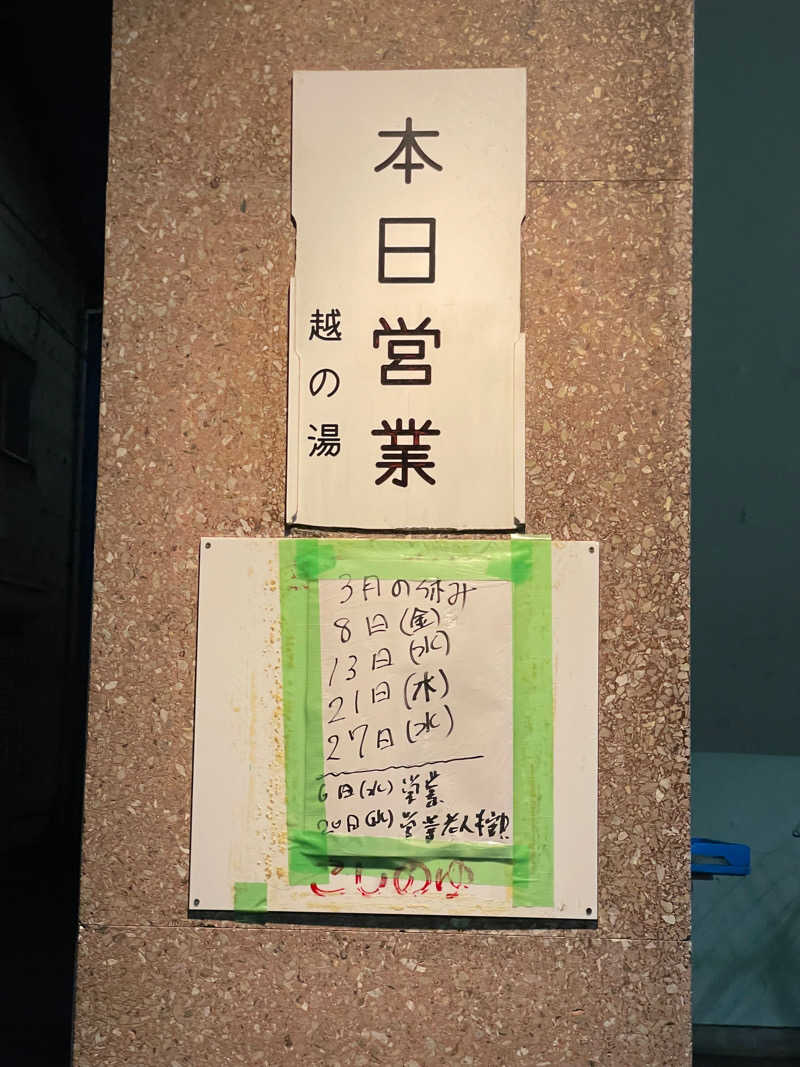 本日営業
越の湯
3月の休み
8日(金)
13日(水)
21日(木)
27日(水)
6日(水)営業
20日(水)営業
こしのゆ